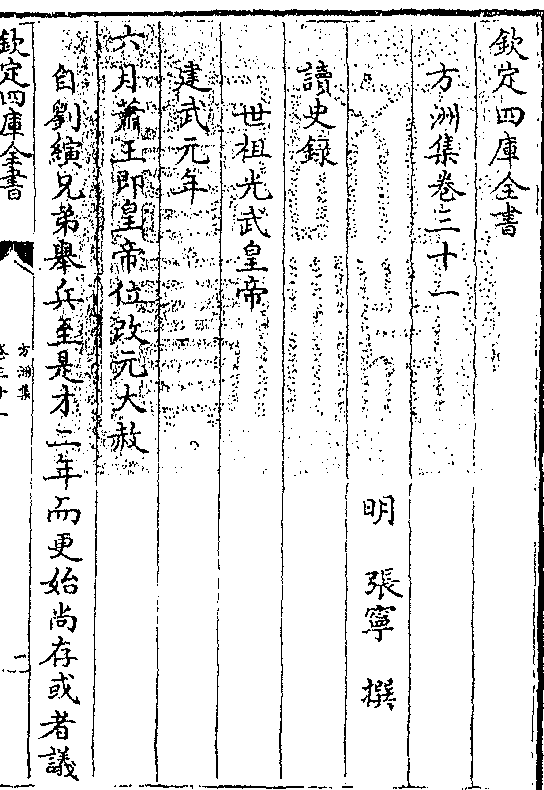 欽定四庫全書
方洲集卷三十一
明 張寧 撰
讀史録
世祖光武皇帝
建武元年
六月蕭王即皇帝位改元大赦
自劉縯兄弟舉兵至是才二年而更始尚存或者議
欽定四庫全書
方洲集
卷三十一